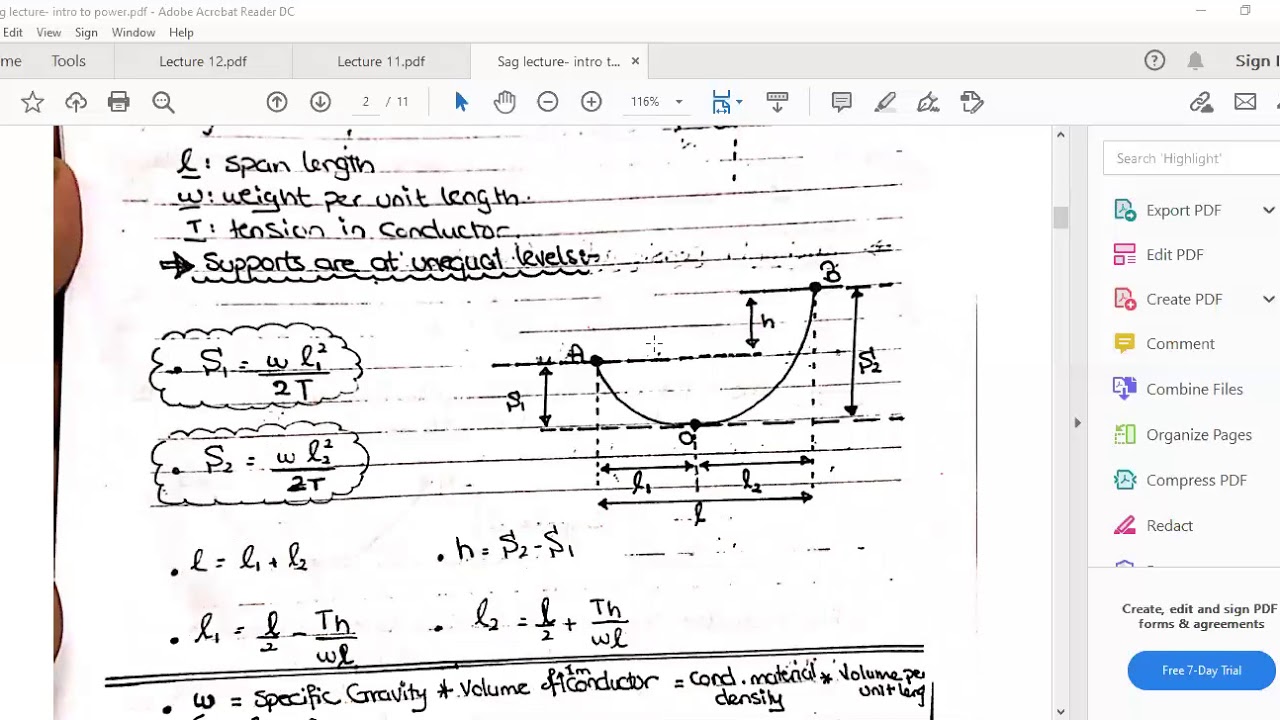 ag lecture- intro to power.pdf - Adobe Acrobat Reader DC
Edit View Sign Window Help
me Tools Lecture 12.pdf Lecture 11.pdf Sag lecture- intro t... × Sign I
2 / 11 116%
l: span length
w: weight per unit length.
T: tension in conductor.
⇒ Supports are at unequal levels:-
B
h
A
S1
S2
O
l1 l2
l
• S1 = w l1² / 2T
• S2 = w l2² / 2T
• l = l1 + l2 • h = S2 - S1
• l1 = l/2 - Th/wl • l2 = l/2 + Th/wl
• w = Specific Gravity * Volume of 1m Conductor = Cond. material density * Volume per unit leng
Search 'Highlight'
Export PDF
Edit PDF
Create PDF
Comment
Combine Files
Organize Pages
Compress PDF
Redact
Create, edit and sign PDF
forms & agreements
Free 7-Day Trial